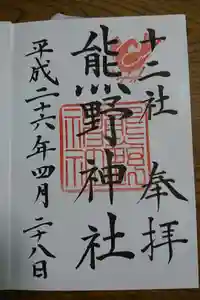 奉拝
十二社
熊野神社
平成二十六年四月二十八日